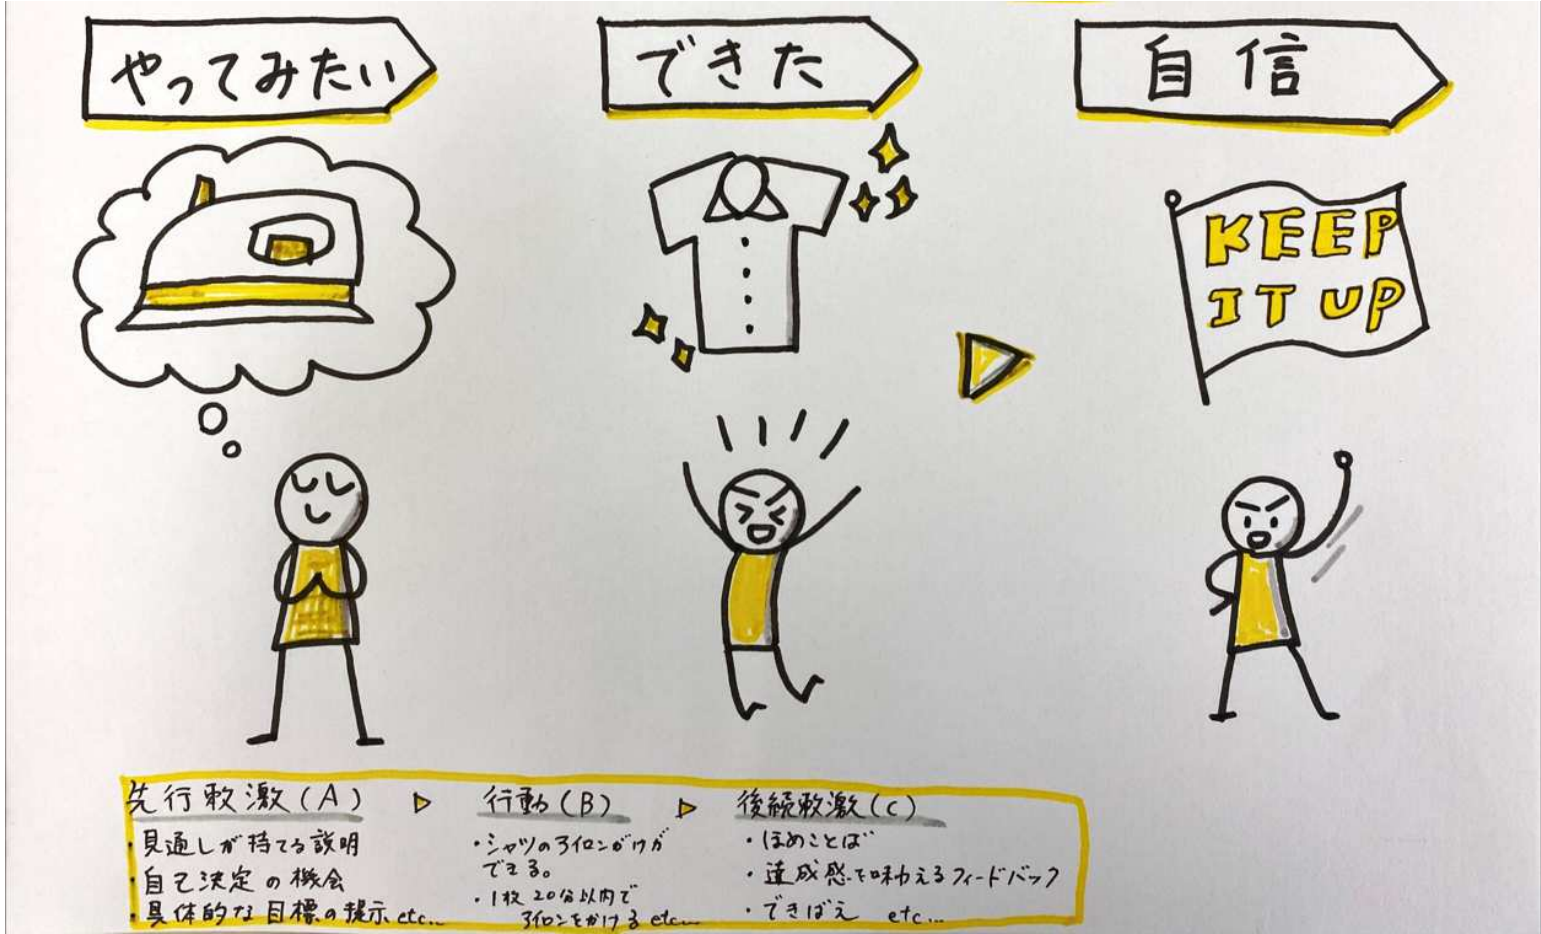 やってみたい
できた
自信
KEEP
IT UP
先行刺激(A)
・見通しが持てる説明
・自己決定の機会
・具体的な目標の提示 etc...
行動(B)
・シャツのアイロンがけが
できる。
・1枚20分以内で
アイロンをかける etc...
後続刺激(C)
・ほめことば
・達成感を味わえるフィードバック
・できばえ etc...